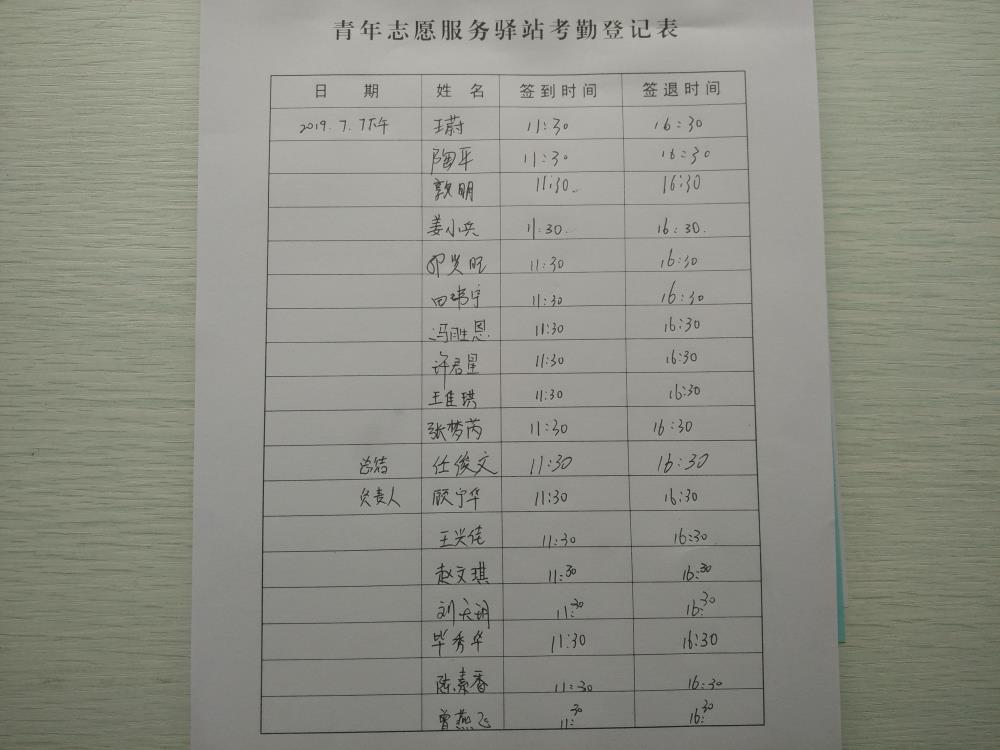 青年志愿服务驿站考勤登记表
日 期 姓 名 签到时间 签退时间
2019.7.7下午 王蔚 11:30 16:30
陶平 11:30 16:30
郭明 11:30 16:30
姜小兵 11:30 16:30
邓兴旺 11:30 16:30
田玮宁 11:30 16:30
冯胜恩 11:30 16:30
许君星 11:30 16:30
王佳琪 11:30 16:30
张梦芮 11:30 16:30
总结 任俊文 11:30 16:30
负责人 顾宁华 11:30 16:30
王兴佳 11:30 16:30
赵文琪 11:30 16:30
刘天翊 11:30 16:30
毕秀华 11:30 16:30
陈素香 11:30 16:30
曾燕飞 11:30 16:30